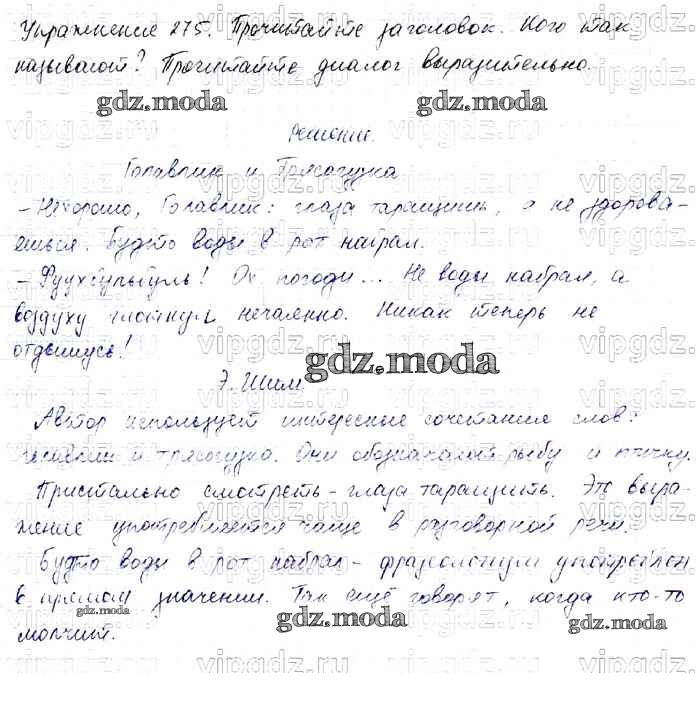 Упражнение 275. Прочитайте заголовок. Кого так
называют? Прочитайте диалог выразительно.
Решение.
Голавлик и Трясогузка
- Нехорошо, Голавлик: глаза таращишь, а не здорова-
ешься. Будто воды в рот набрал.
- Фуух! Ох погоди... Не воды набрал, а
воздуху глотнул нечаянно. Никак теперь не
отдышусь!
Э. Шим
Автор использует интересные сочетания слов:
голавлик и трясогузка. Они обозначают рыбу и птичку.
Пристально смотреть - глаза таращить. Это выра-
жение употребляется чаще в разговорной речи.
Будто воды в рот набрал - фразеологизм употреблен
в прямом значении. Так ещё говорят, когда кто-то
молчит.
gdz.moda
vipgdz.ru